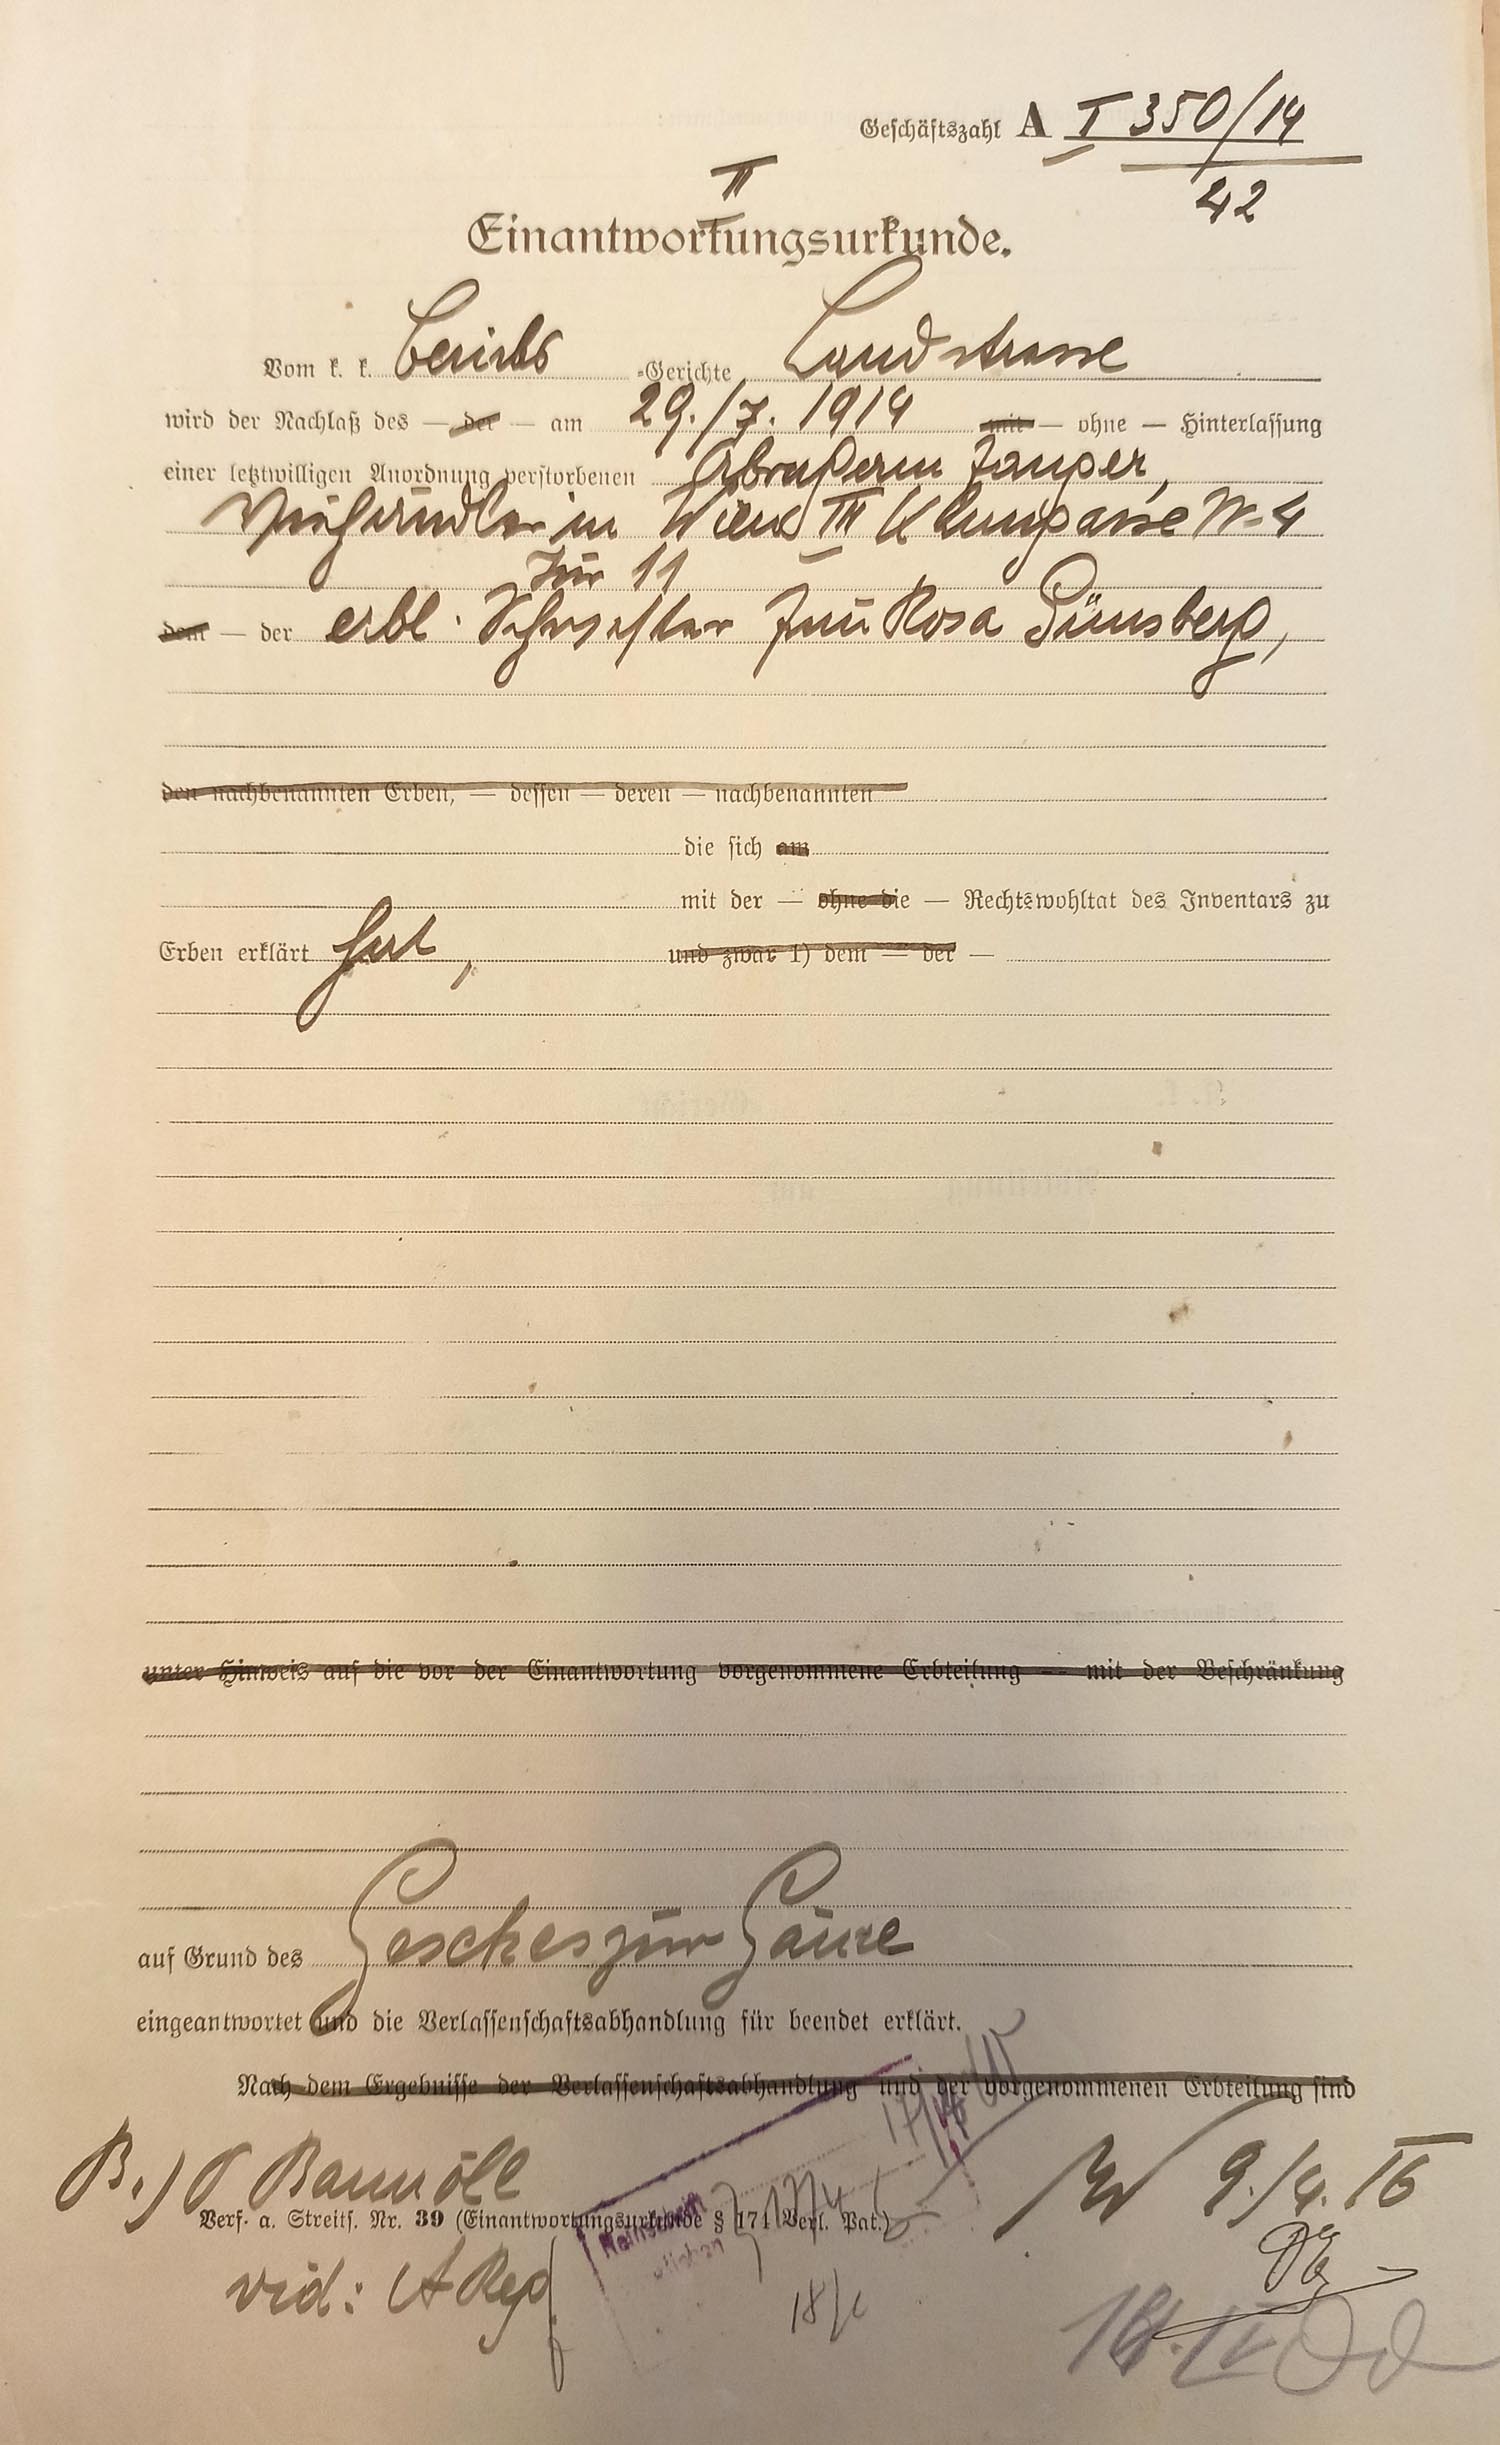 Geschäftszahl A I 350/14
42
II
Einantwortungsurkunde.
Vom k. k. Bezirks -Gerichte Landstrasse
wird der Nachlaß des — der — am 29./7. 1914 mit — ohne — Hinterlassung
einer letztwilligen Anordnung verstorbenen Abraham
Viehhändler in Wien III Klimgasse Nr 4
Tür 11
dem — der erbl. Schwester Frau Rosa Günsberg,
den nachbenannten Erben, — dessen — deren — nachbenannten
die sich am
mit der — ohne die — Rechtswohltat des Inventars zu
Erben erklärt hat, und zwar 1) dem — der —
unter Hinweis auf die vor der Einantwortung vorgenommene Erbteilung — mit der Beschränkung
auf Grund des Gesetzes zur Gänze
eingeantwortet und die Verlassenschaftsabhandlung für beendet erklärt.
Nach dem Ergebnisse der Verlassenschaftsabhandlung und der vorgenommenen Erbteilung sind
B.) 9./4. 16
Verf. a. Streits. Nr. 39 (Einantwortungsurkunde § 174 Verl. Pat.)
Reinschrift
vid: